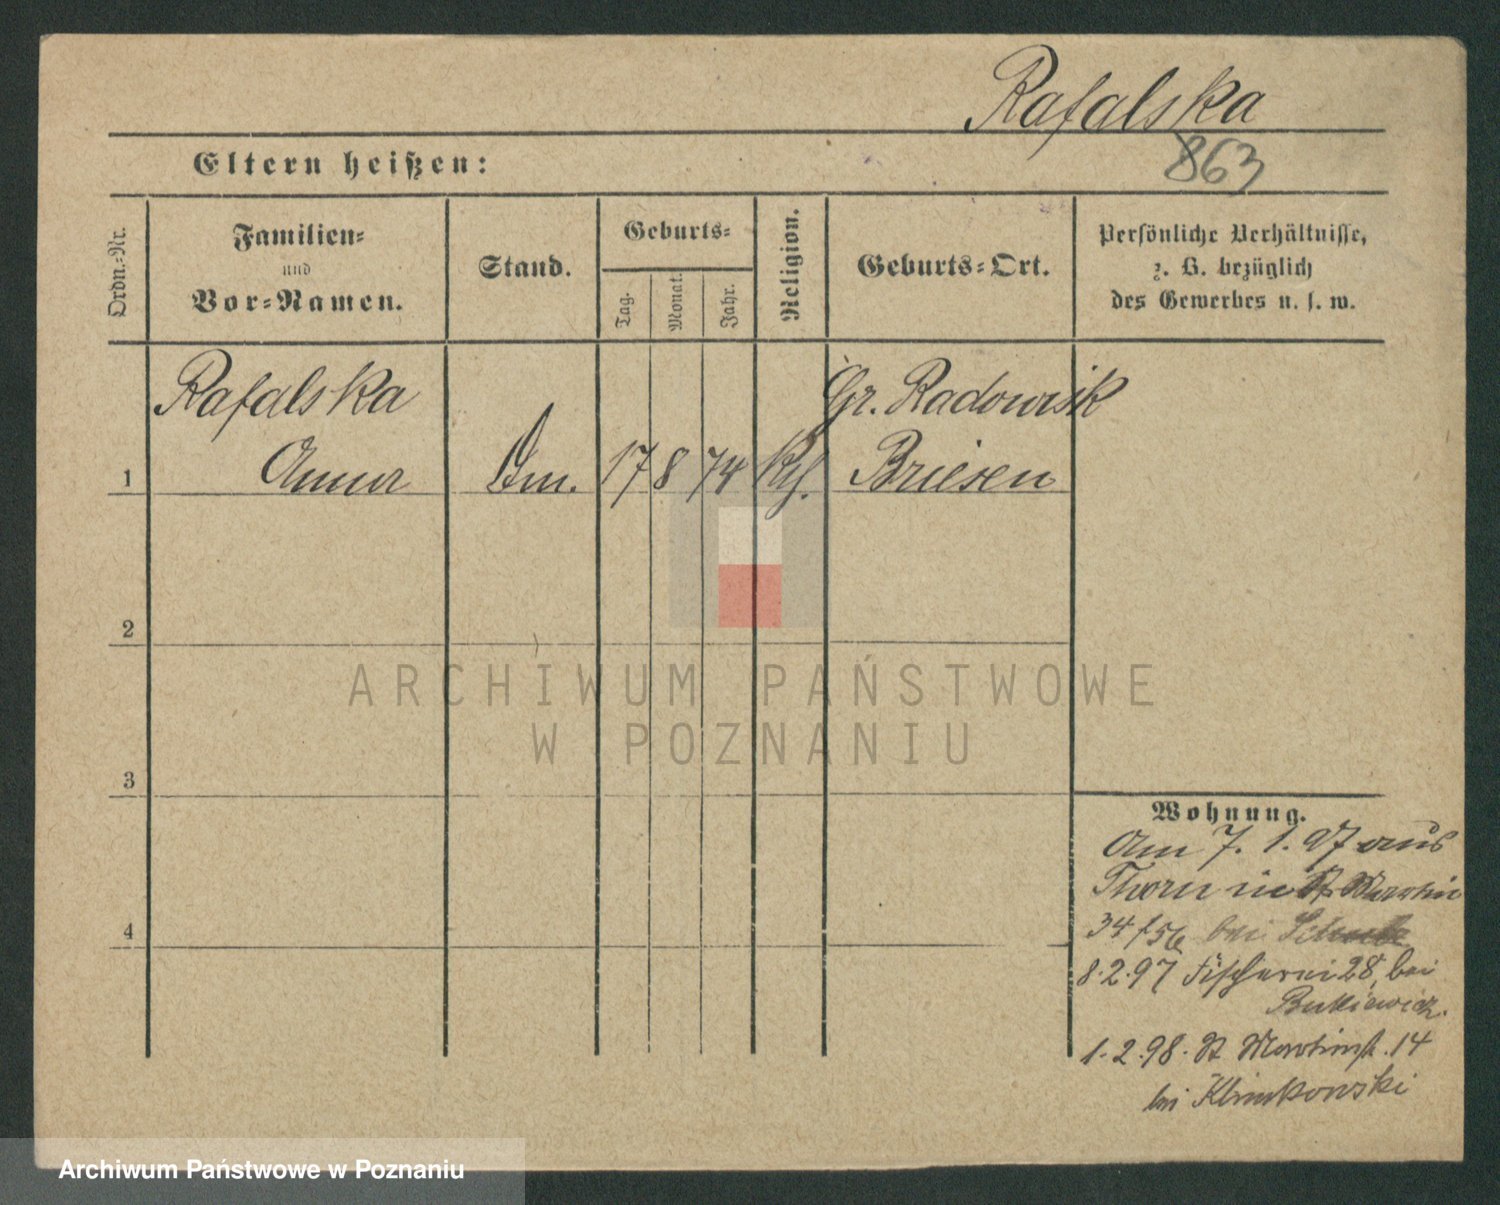 Rafalska
863
Eltern heißen:
Ordn.-Nr.
Familien-
und
Vor-Namen.
Stand.
Geburts-
Tag.
Monat.
Jahr.
Religion.
Geburts-Ort.
Persönliche Verhältnisse,
z. B. bezüglich
des Gewerbes u. s. w.
Rafalska
Gr. Radowisk
1 Anna Dm. 17 8 74 Kth. Briesen
2
ARCHIWUM PAŃSTWOWE
W POZNANIU
3
Wohnung.
Am 7. 1. 97 aus
Thorn in St Martin
34 bei
4
8.2.97 Fischerei 28, bei
Butkiewicz.
1.2.98. St Martinstr. 14
bei Klimkowski
Archiwum Państwowe w Poznaniu